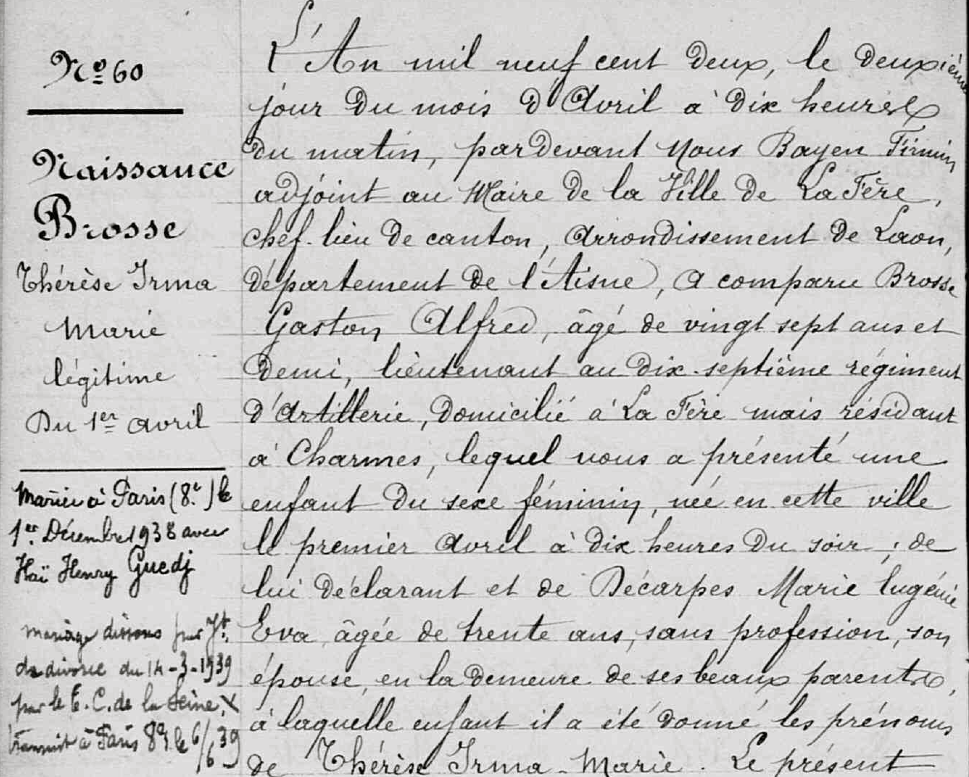 N° 60
Naissance
Brosse
Thérèse Irma
Marie
légitime
Du 1er avril
Mariée à Paris (8e) le
1er Décembre 1938 avec
Haï Henry Guedj
mariage dissous par Jt.
de divorce du 14-3-1939
par le T. C. de la Seine,
transcrit à Paris 8e le 6/6 39
L'An mil neuf cent deux, le deuxième
jour du mois d'Avril à dix heures
du matin, pardevant Nous Bayen Firmin
adjoint au Maire de la Ville de La Fère,
chef-lieu de canton, arrondissement de Laon,
département de l'Aisne, a comparu Brosse
Gaston Alfred, âgé de vingt sept ans et
demi, lieutenant au dix-septième régiment
d'Artillerie, domicilié à La Fère mais résidant
à Charmes, lequel nous a présenté une
enfant du sexe féminin, née en cette ville
le premier avril à dix heures du soir, de
lui déclarant et de Décarpes Marie Eugénie
Eva, âgée de trente ans, sans profession, son
épouse, en la demeure de ses beaux parents,
à laquelle enfant il a été donné les prénoms
de Thérèse Irma-Marie. Le présent